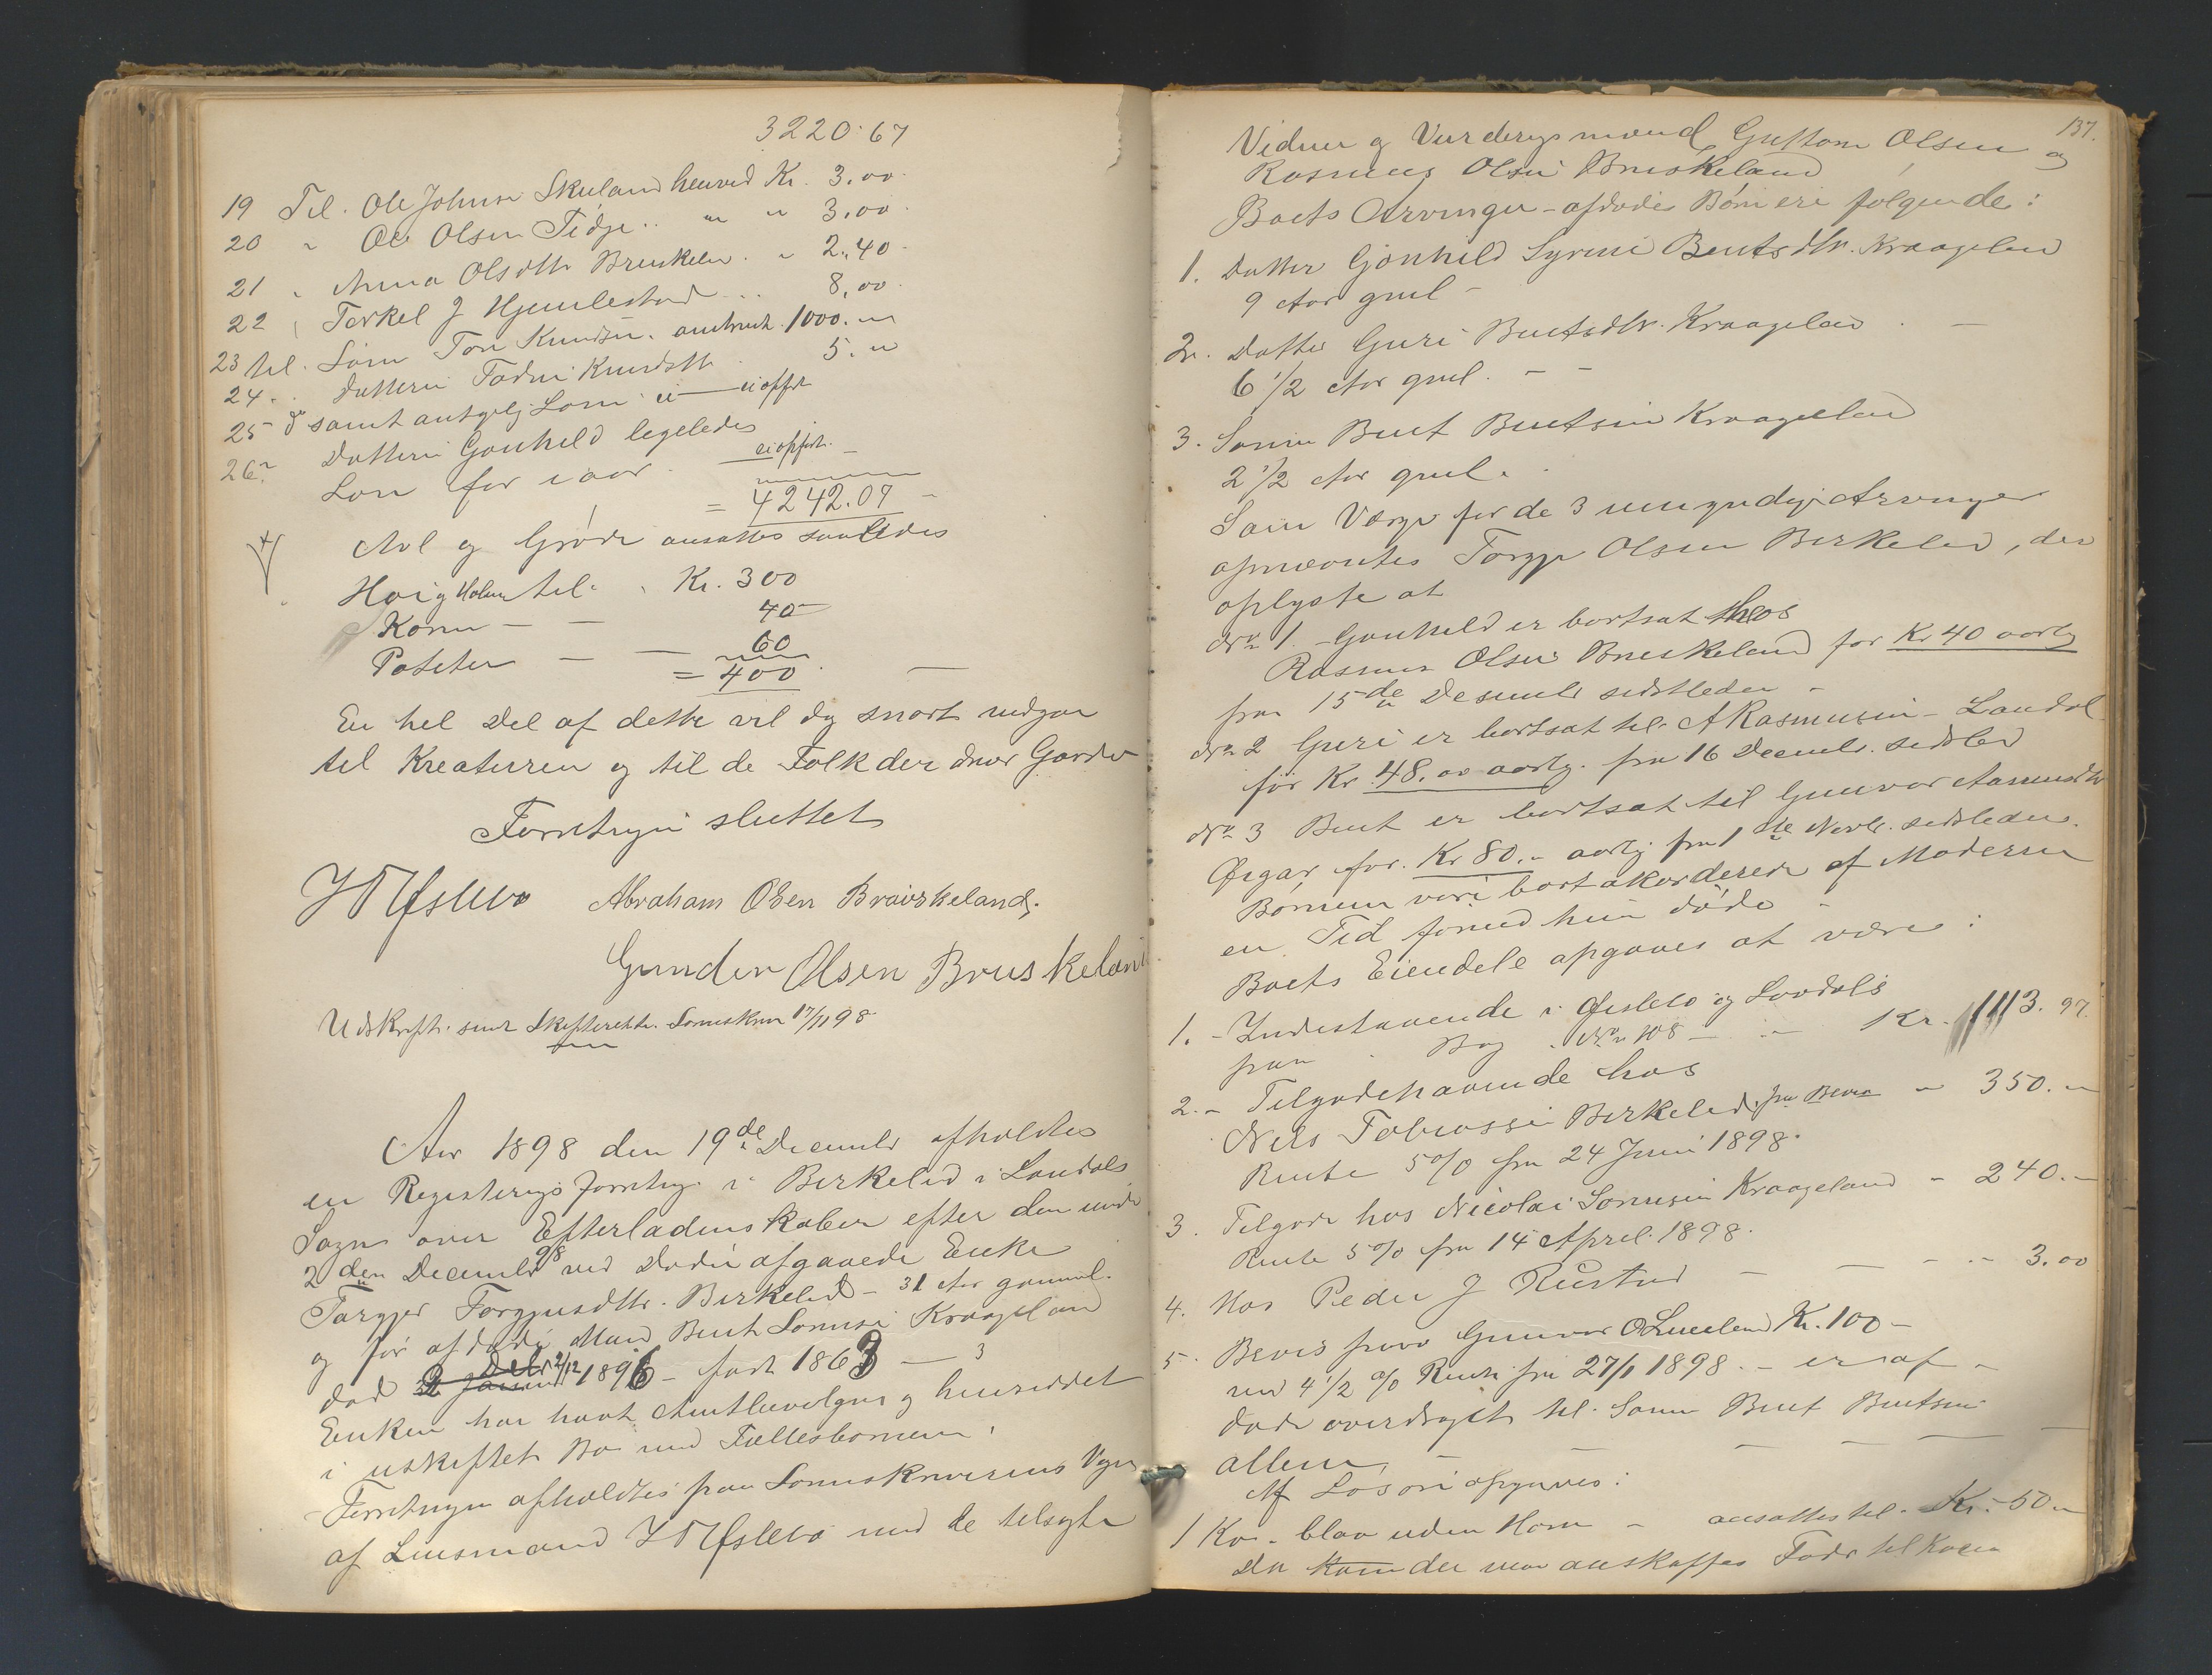 3220.67
19 Til Ole Johnsen Skuland henved Kr. 3.00
20 " Ole Olsen Tidje " " 3.00
21 " Anna Olsdttr Bruskeland " 2.40
22 " Terkel J Hjemlestad 8.00
23 til Søn Tore Knudsen. 1000. "
24 " Datteren Knudsdttr 5. "
25 do samt Løn ei opfrt
26 Datteren Gonhild legeledes
Løn for i aar eiopfrt.
= 4242.07
Avl og Grøde ansattes saaledes
Høi og Halm til Kr. 300
Korn — — 40
Poteter — — 60
= 400
En hel Del af dette vil dog snart medgaa
til Kreaturen og til de Folk der driver Garden
Forretnigen sluttet
JT Øslebø Abraham Olsen Brøiskeland.
Gunder Olsen Bruskeland
Udskrift sendt Skifteretten Sorenskrn 17/11 98
Aar 1898 den 19de Decembr afholdtes
en Registerigs forretng. i Birkelid i Laudals
Sogn over Efterladenskaber efter den under
2den Decembr 98 ved Døden afgaaede Enke
Torgjer Torgjusdttr. Birkelid — 31 Aar gammel.
og før afdøde Mand Bent Sørensen Kraageland
død 2/12 1896 — født 1863 — 3
Enken har havt Amtbevilgng og hensiddet
i uskiftet Bo med Fællesbørnene.
Forretnigen afholdtes paa Sorenskriverens Vegne
af Lensmand JT Øslebø med de tilsagte
137.
Vidner og Vurderigsmænd Guttorm Olsen og
Rasmus Olsen Bruskeland
Boets Arvinger - afdødes Børn ere følgende:
1. Datter Gonhild Syrine Bentsdtr. Kraageland
9 Aar gml —
2. Datter Guri Bentsdtr. Kraageland —
6 1/2 Aar gml. — —
3. Sønn Bent Bentsen Kraageland
2 1/2 Aar gml.
Som Værge for de 3 umyndige Arvinger
opnævntes Torgje Olsen Birkelid, der
oplyste at
No 1 - Gonhild er bortsat hos
Rasmus Olsen Bruskeland for Kr 40 aarlg
fra 15de Desembr sidstleden —
No 2 Guri er bortsat til A Rasmusen - Laudal
før Kr 48.00 aarlg. fra 16 Decembr. sidstled
No 3 Bent er bortsat til Gunvor Aasmundsdtr
Øigar for Kr 80. " aarlg fra 1ste Novbr. sidstleden.
Børnene vare bortakorderede af Moderen
en Tid forind hun døde —
Boets Eiendele opgaves at være:
1. - Indestaaende i Øslebø og Laudals
paa Bog No 108 — " Kr. 1113. 97.
2. - Tilgodehavende hos
Nils Tobiassen Birkelid paa Bevis " 350. "
Rente 5 % fra 24 Juni 1898.
3. Tilgode hos Nicolai Sørensen Kraageland " 240. "
Rente 5 % fra 14 April 1898.
4. Hos Peder J Rustad — — 3.00
5. Bevis paa Gunvor O Kr. 100 —
med 4 1/2 % Rente fra 27/1 1898. — er af —
døde overdraget til Sønn Bent Bentsen
allene — — — —
Af Løsøre opgaves:
1 Ko - blaa uden Horn — ansattes til Kr. 50. "
Da der maa anskaffes Foder til Koen